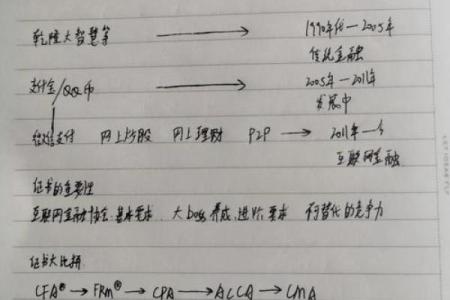 乾隆大智慧等 → 1990年代-2005年
传统金融
支付宝/QQ币 → 2005年-2011年
发展中
微信支付 网上炒股 网上理财 P2P → 2011年-今
互联网金融
证书的重要性
互联网金融协会.基本要求 大boss养成,进阶要求 不可替代的竞争力
证书大比拼
CFA® → FRM® → CPA → ACCA → CMA